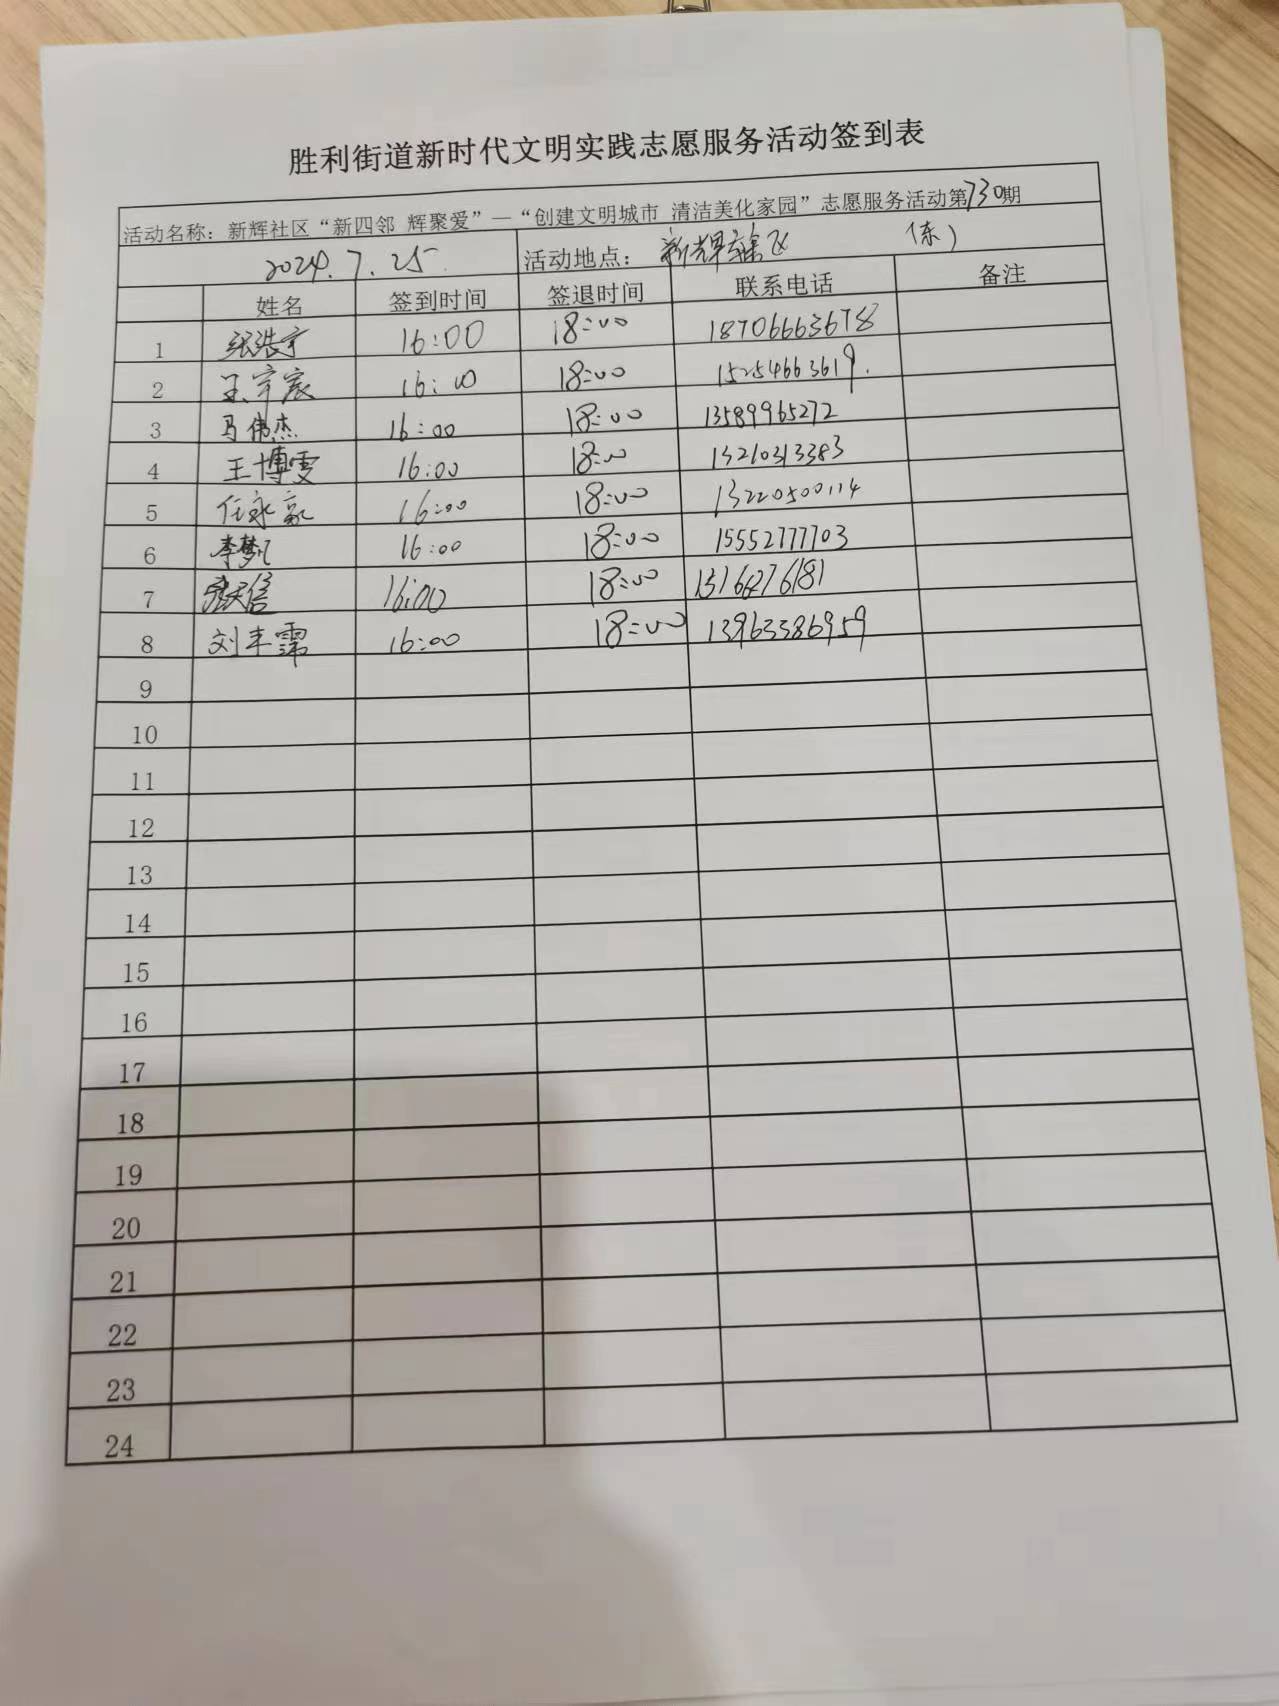 胜利街道新时代文明实践志愿服务活动签到表
活动名称：新辉社区“新四邻 辉聚爱”—“创建文明城市 清洁美化家园”志愿服务活动第730期
2024.7.25 活动地点：新辉 （东）
姓名 签到时间 签退时间 联系电话 备注
1 张浩宇 16:00 18:00 18706663678
2 王宇宸 16:00 18:00 15254663619.
3 马伟杰 16:00 18:00 13589965272
4 王博雯 16:00 18:00 13210313383
5 任永赢 16:00 18:00 13220500114
6 李梦凡 16:00 18:00 15552777703
7 信 16:00 18:00
8 刘丰霈 16:00 18:00 13963386959
9
10
11
12
13
14
15
16
17
18
19
20
21
22
23
24